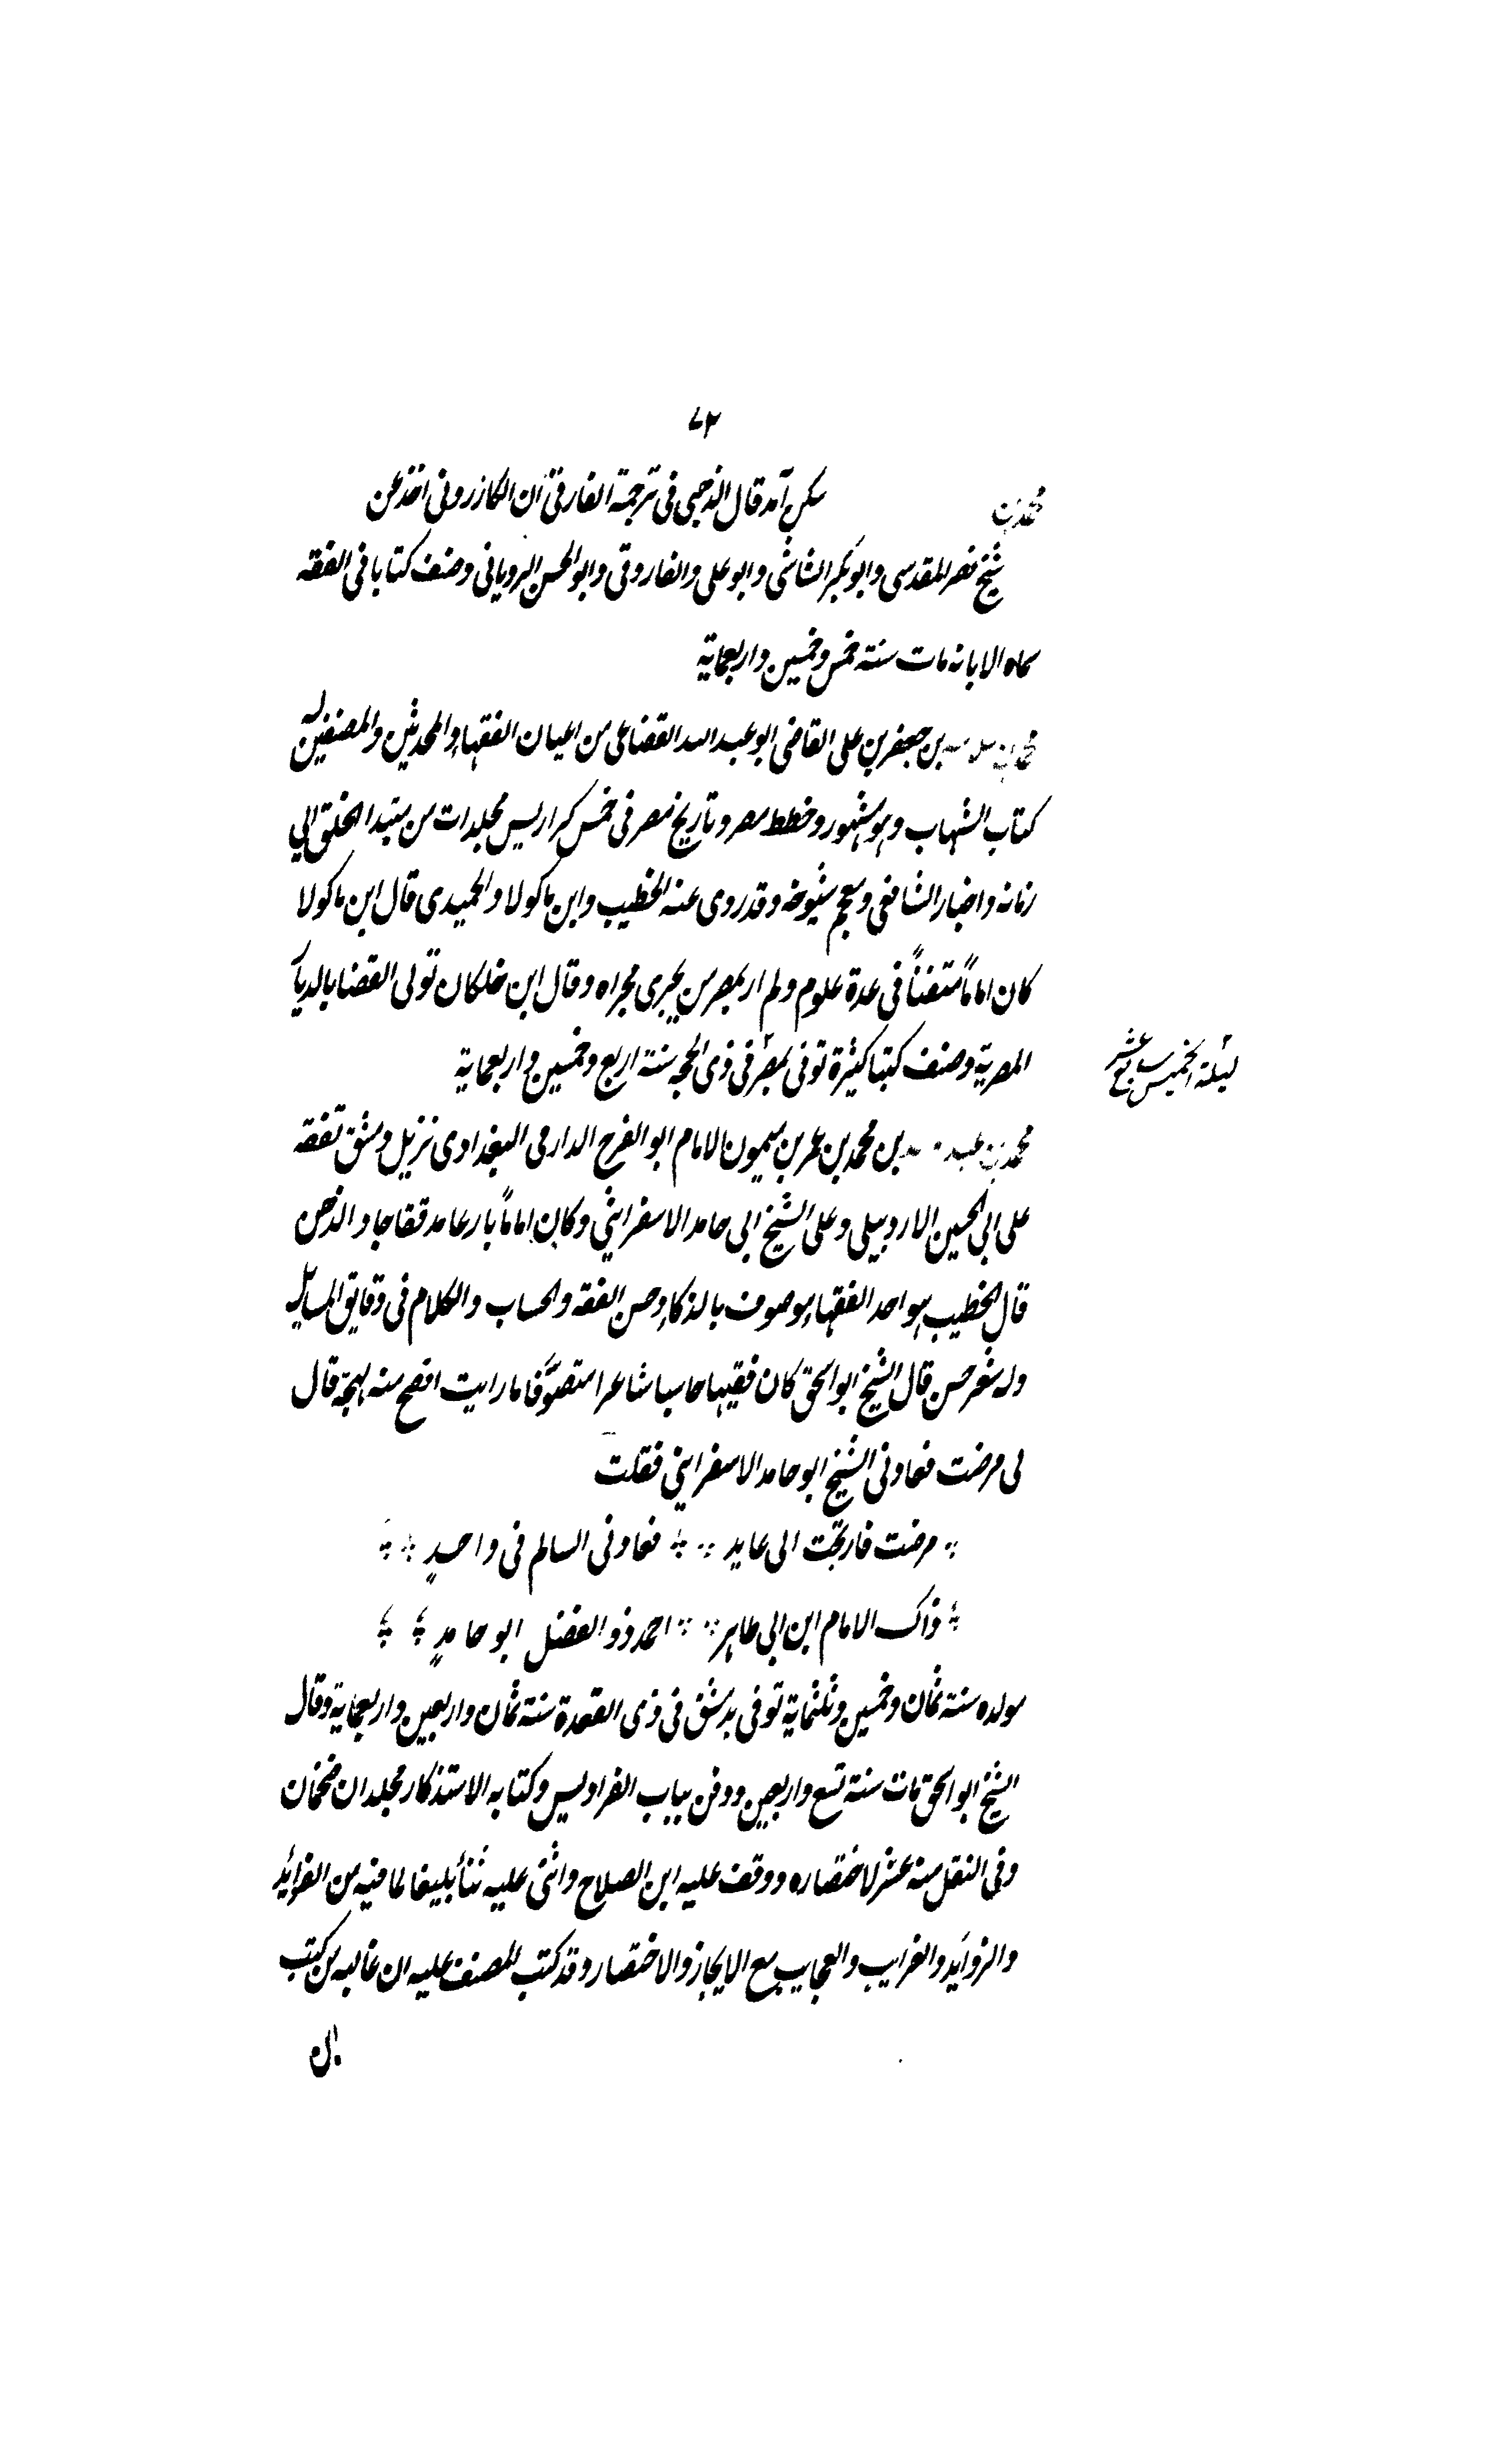 ٧٢
محمد بن سكن آمد قال الذهبى فى ترجمة الفارقى ان الكازرونى اخذ عن
شيخ نصر المقدسى وابو بكر الشاشى وابو على والفاروقى وابو الحسن الرويانى وصنف كتابا فى الفقه
سماه الابانه مات سنة خمس وخمسين واربعماية
محمد بن سلامه بن جعفر بن على القاضى ابو عبد الله القضاعى من اعيان الفقهاء والمحدثين والمصنفين له
كتاب الشهاب وهو مشهور وخطط مصر وتاريخ مصر فى خمس كراريس مجلدات من مبتدا الخلق الى
زمانه واخبار الشافعى ومعجم شيوخه وقد روى عنه الخطيب وابن ماكولا والحميدى قال ابن ماكولا
كان اماماً متفنناً فى عدة علوم ولم ار بمصر من يجرى مجراه وقال ابن خلكان تولى القضا بالديار
المصرية وصنف كتبا كثيرة توفى بمصر فى ذى الحجه سنة اربع وخمسين واربعماية
ليلة الخميس سابع عشر
محمد بن عبد بن محمد بن عمر بن ميمون الامام ابو الفرج الدارمى البغدادى نزيل دمشق تفقه
على ابى الحسين الاردبيلى وعلى الشيخ ابى حامد الاسفراينى وكان اماماً بارعا مدققا حاد الذهن
قال الخطيب هو احد الفقهاء موصوف بالذكاء وحسن الفقه والحساب والكلام فى دقايق المسايل
وله شعر حسن قال الشيخ ابو اسحق كان فقيها حاسبا شاعرا متصوّفا ما رايت افصح منه لهجة قال
لى مرضت فعادنى الشيخ ابو حامد الاسفراينى فقلت
مرضت فارتجت الى عايد فعادنى السالم فى واحدٍ
ذاك الامام ابن ابى طاهر احمد ذو الفضل ابو حامدٍ
مولده سنة ثمان وخمسين وثلثماية توفى بدمشق فى ذى القعدة سنة ثمان واربعين واربعماية وقال
الشيخ ابو اسحق مات سنة تسع واربعين ودفن بباب الفراديس وكتابه الاستذكار مجلدان ضخمان
وفى النقل منه عسر لاختصاره ووقف عليه ابن الصلاح واثنى عليه ثناً بليغا لما فيه من الفوايد
والزوايد والغرايب والعجايب مع الايجاز والاختصار وقد كتب المصنف عليه ان غالبه من كتب